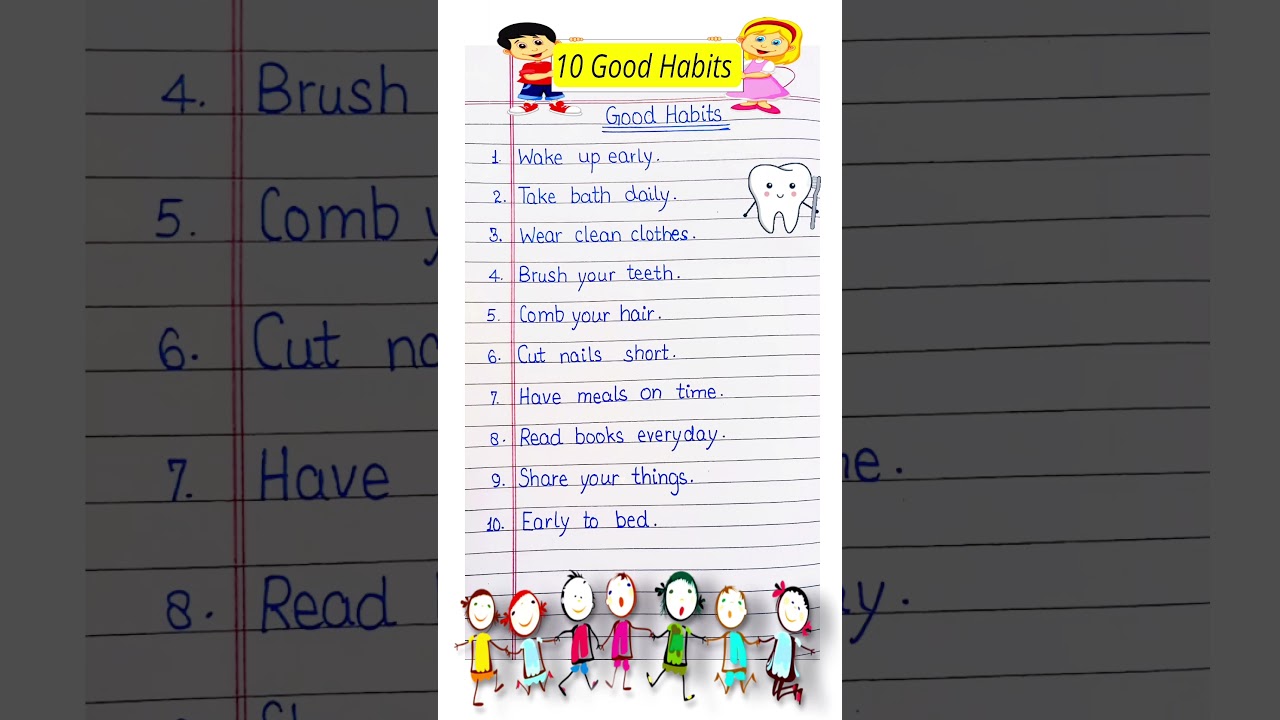 10 Good Habits
Good Habits
1. Wake up early.
2. Take bath daily.
3. Wear clean clothes.
4. Brush your teeth.
5. Comb your hair.
6. Cut nails short.
7. Have meals on time.
8. Read books everyday.
9. Share your things.
10. Early to bed.
4. Brush
5. Comb
6. Cut
7. Have
8. Read